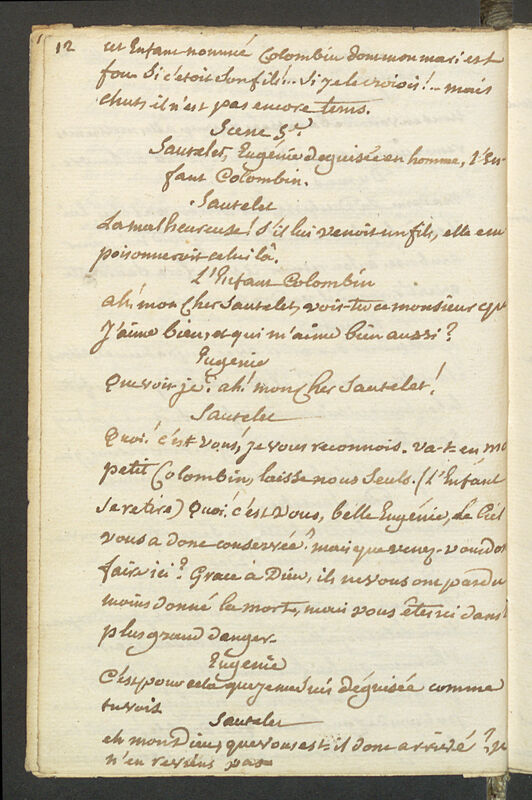 12 cet Enfant nommé Colombin dont mon mari est
fou. Si c'étoit son fils!.. Si je le croiois!.. mais
chut, il n'est pas encore tems.
Scene 5e.
Sautelet, Eugénie deguisée en homme, l'En-
fant Colombin.
Sautelet
La malheureuse! S'il lui venoit un fils, elle em
poisonneroit celui là.
L'Enfant Colombin
ah! mon Cher Sautelet, vois-tu ce monsieur que
J'aime bien, et qui m'aime bien aussi?
Eugénie
Que vois-je? ah! mon Cher Sautelet!
Sautelet
Quoi! c'est vous, je vous reconnois. va-t-en mo
petit Colombin, laisse nous seuls. (L'Enfant
se retire) Quoi! c'est vous, belle Eugénie, le Ciel
vous a donc conservée? mais que venez-vous do
faire ici? Grace à Dieu, ils ne vous ont pas du
moins donné la mort, mais vous êtes ici dans l
plus grand danger.
Eugénie
C'est pour cela que je me suis déguisée comme
tu vois
Sautelet
eh mon Dieu, que vous est-il donc arrivé? je
n'en reviens pas